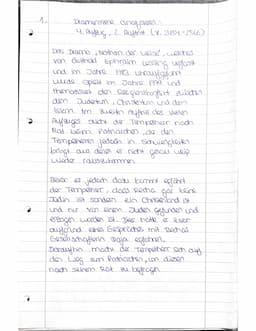 1. Dramenszene analysieren:
4. Aufzug, 2. Auftritt (V.
Das Drama „Nathan der Weise", welches
von Gotthold Ephraim Lessing verfasst
und im Jahre 1783 uraufgeführt
wurde spielt im Jahre
thematisiert den Religionskonflikt zwischen
dem Judentum, Christentum und dem
Islam. Im zweiten Auftritt des vierten
Aufzuges sucht der Tempelherr nach
Rat beim Patriarchen, der den
Tempelherrn jedoch in Schwierigkeiten
bringt aus denen er nicht genau weiß
wieder rauszukommen.
Bevor es jedoch dazu kommt erfährt
der Tempelherr, dass Recha gar keine
Jüdin ist sondern ein Christenkind ist
und nur von einem Juden gefunden und
erzogen worden ist. Dies hatte er
aufgrund eines Gesprächs mit Rechas
Gesellschafterin Daja erfahren.
Daraufhin macht der Tempelherr sich auf
den Weg zum Patriarchen, um diesen
nach seinem Rat zu befragen.